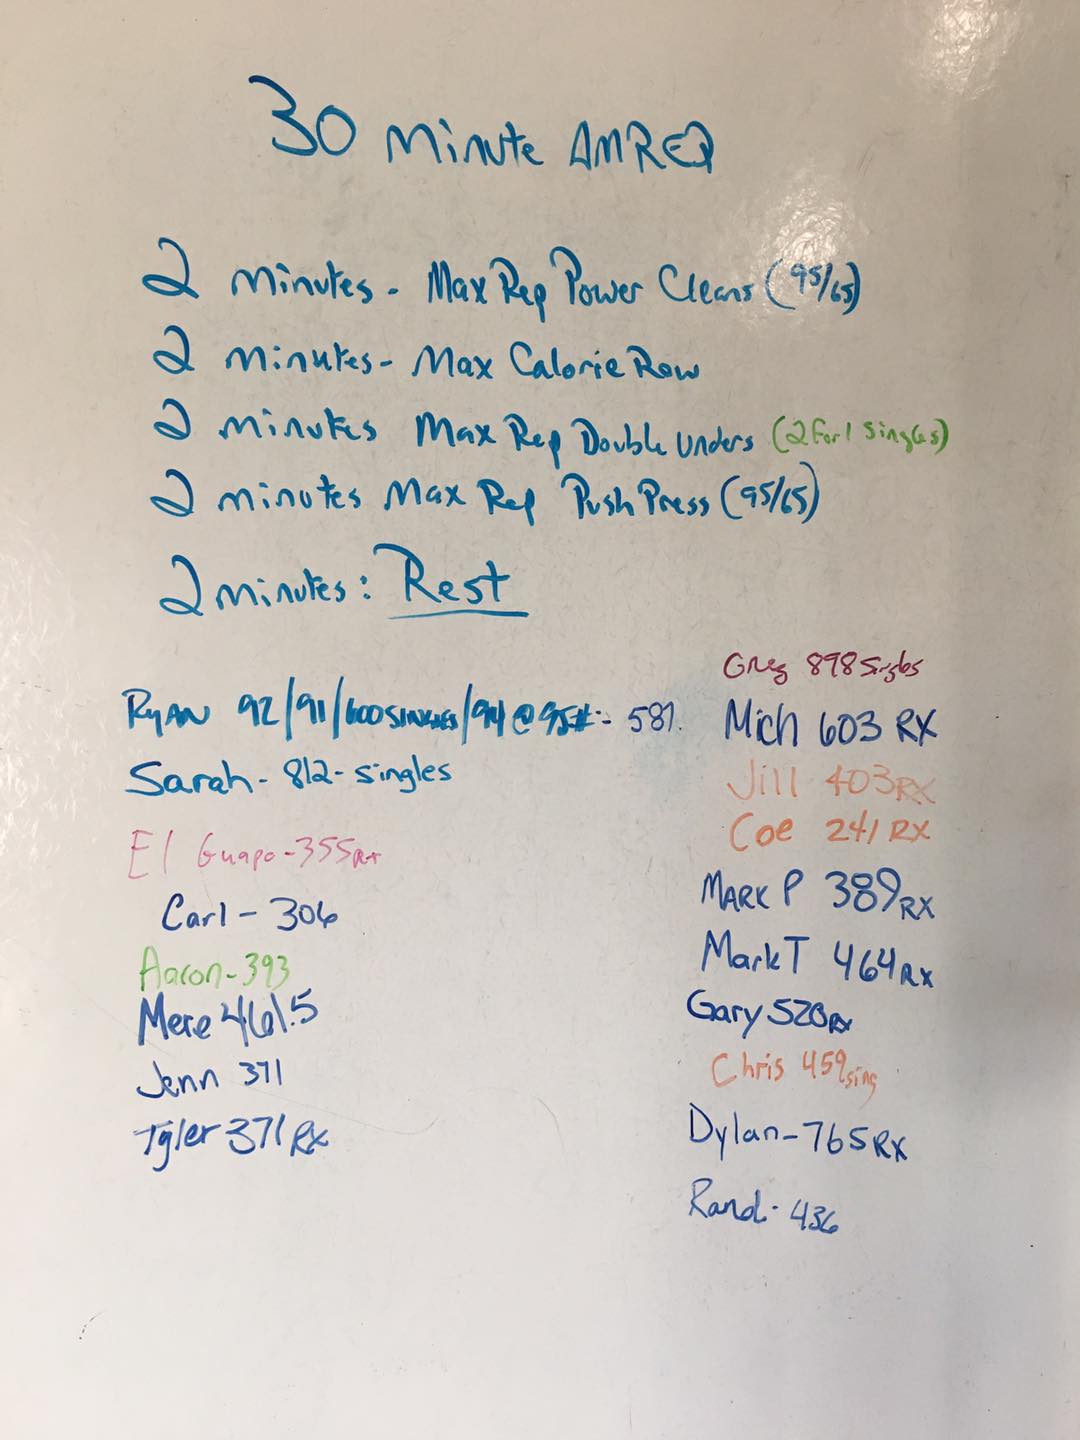 30 Minute AMREP
2 minutes - Max Rep Power Cleans (95/65)
2 minutes - Max Calorie Row
2 minutes Max Rep Double Unders (2 for 1 Singles)
2 minutes Max Rep Push Press (95/65)
2 minutes: Rest
RYAN 92/91/600 SINGLES/94 @ 95#:- 581.
Sarah - 812 - singles
El Guapo - 355 RX
Carl - 306
Aaron - 393
Mere 461.5
Jenn 371
Tyler 371 RX
Greg 898 Singles
Mich 603 RX
Jill 403 RX
Coe 241 RX
MARK P 389 RX
Mark T 464 RX
Gary 520 RX
Chris 459 sing
Dylan - 765 RX
Randi - 436